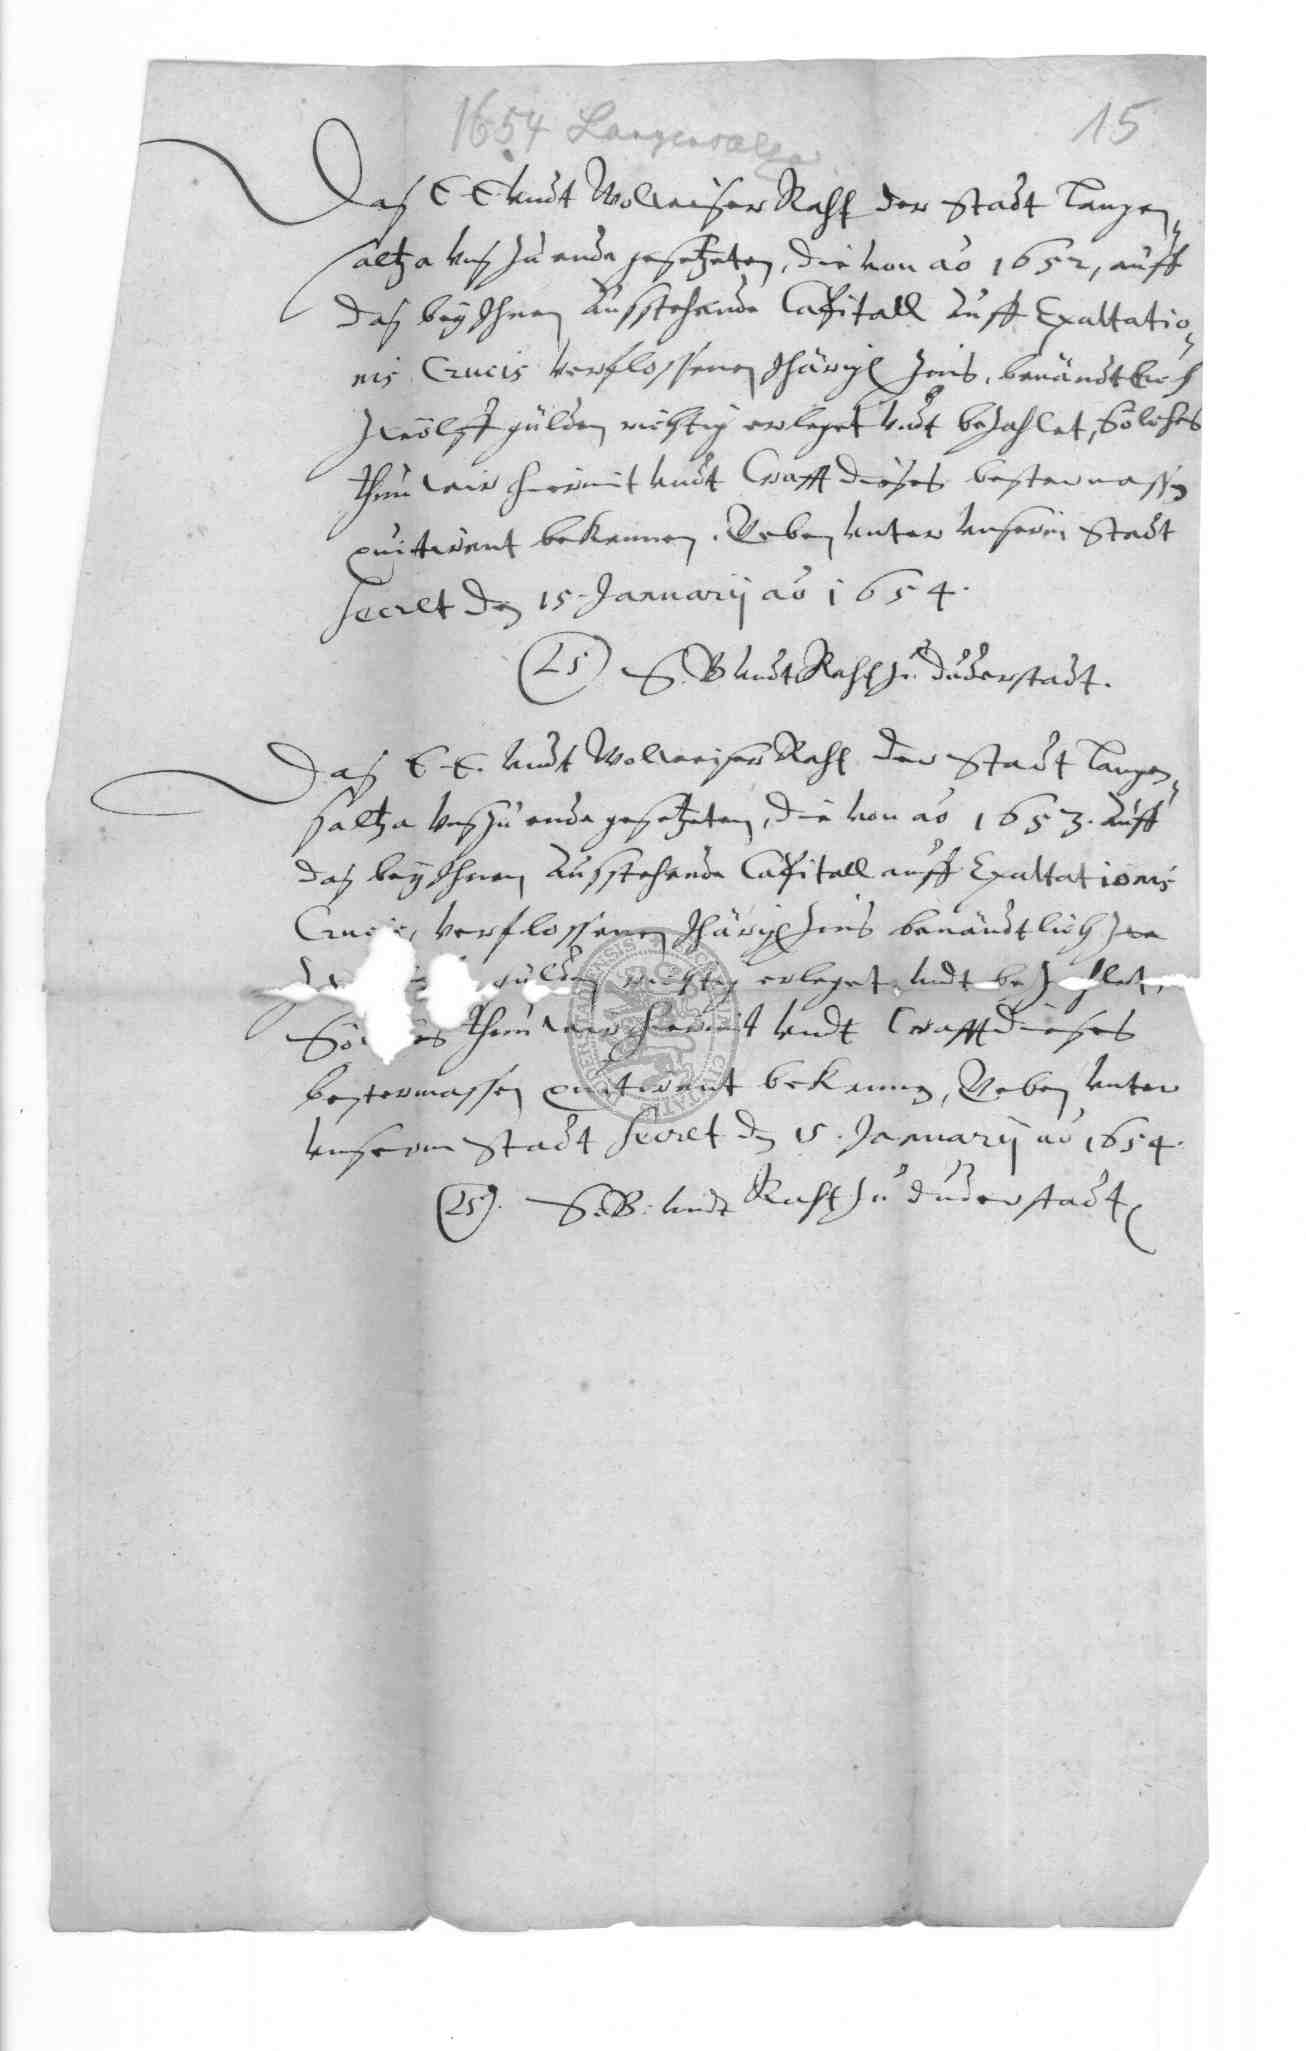 1654 Langensalza
15
Daß E. E. undt Wollweiser Raht der Stadt Langen¬
saltza unß zu ende gesetzeten, die von ao 1652, auff
daß bey Ihnen Ausstehende Capitall Auff Exaltatio¬
nis Crucis verflossenen Jhärige Zins, benändtlich
Zwölff gülden richtig erleget undt bezahlet, Solches
thun wir hiermit undt Crafft dieses bestermassen
quitirent bekennen. Geben unter unserm Stadt
Secret den 15. Januarij ao 1654.
(LS) S. B undt Raht zu Duderstadt.
Daß E. E. undt Wollweiser Raht der Stadt Langen¬
saltza unß zu ende gesetzeten, die von ao 1653. Auff
daß bey Ihnen Ausstehende Capitall auff Exaltationis
Crucis, verflossenen Jhärige Zins benändtlich
gülden richtig erleget undt bezahlet,
thun wir hiermit undt Crafft dieses
bestermassen quitirent bekennen, Geben unter
unserm Stadt Secret den 15. Januarij ao 1654.
(LS). S. B. undt Raht zu Duderstadt